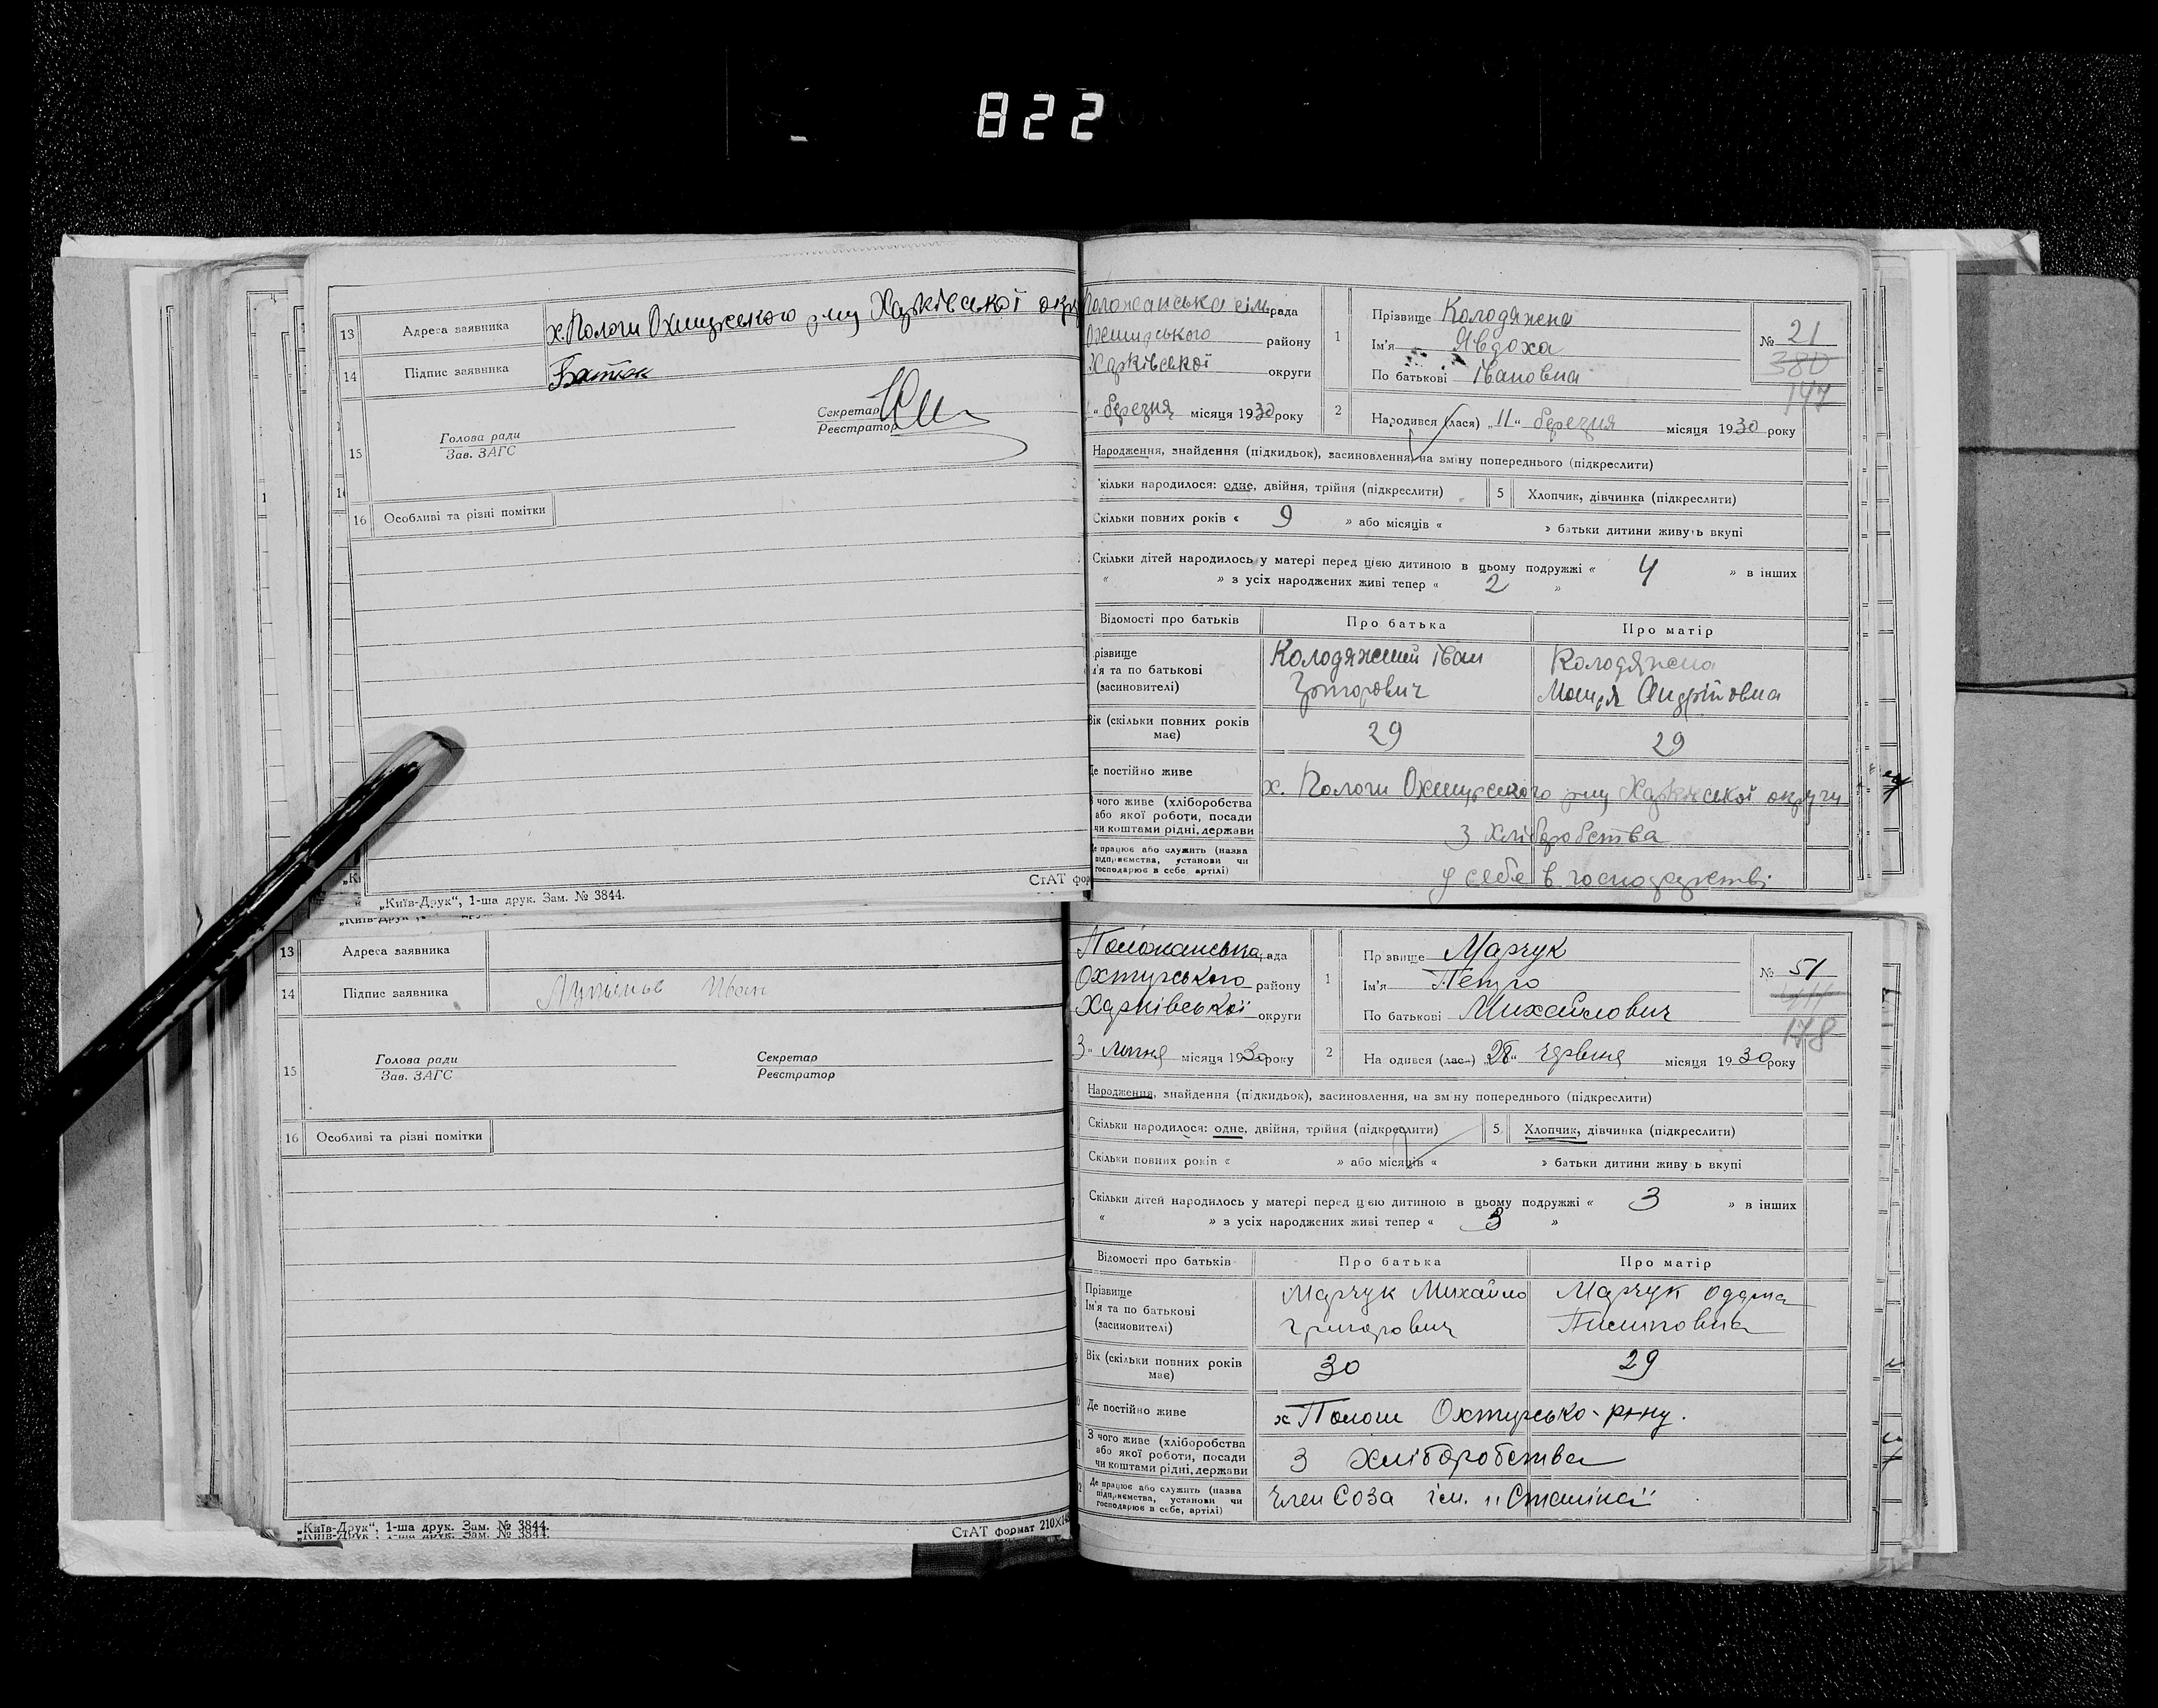 822
13 Адреса заявника х. Пологи Охтирського р-ну Харківської окр
14 Підпис заявника
15 Голова ради
Зав. ЗАГС
Секретар
Реєстратор
16 Особливі та різні помітки
СтАТ фор
„Київ-Друк“, 1-ша друк. Зам. № 3844.
сільрада
Охтирського району
Харківської округи
“ березня місяця 1930 року
1 Прізвище Колодяжна
Ім'я Явдоха
По батькові Івановна
№ 21
380
147
2 Народився (лася) „11“ березня місяця 1930 року
Народження, знайдення (підкидьок), засиновлення, на зміну попереднього (підкреслити)
кільки народилося: одне, двійня, трійня (підкреслити) 5 Хлопчик, дівчинка (підкреслити)
Скільки повних років « 9 » або місяців « » батьки дитини живуть вкупі
Скільки дітей народилось у матері перед цією дитиною в цьому подружжі « 4 » в інших
« » з усіх народжених живі тепер « 2 »
Відомості про батьків Про батька Про матір
різвище
м'я та по батькові
(засиновителі)
Колодяжний Іван
Колодяжна
Андрійовна
Вік (скільки повних років має) 29 29
Де постійно живе х. Пологи Охтирського р-ну Харківської округи
З чого живе (хліборобства
або якої роботи, посади
чи коштами рідні, держави
З хліборобства
Де працює або служить (назва
підприємства, установи чи
господарює в себе, артілі)
у себе в господарстві
13 Адреса заявника
14 Підпис заявника Іван
15 Голова ради
Зав. ЗАГС
Секретар
Реєстратор
16 Особливі та різні помітки
„Київ-Друк“, 1-ша друк. Зам. № 3844.
СтАТ формат 210×1
Положанська рада
Охтирського району
Харківської округи
3 “ липня місяця 1930 року
1 Прізвище Марчук
Ім'я Петро
По батькові Михайлович
№ 51
178
2 Народився (лася) „28“ червня місяця 1930 року
Народження, знайдення (підкидьок), засиновлення, на зміну попереднього (підкреслити)
Скільки народилося: одне, двійня, трійня (підкреслити) 5 Хлопчик, дівчинка (підкреслити)
Скільки повних років « » або місяців « » батьки дитини живуть вкупі
Скільки дітей народилось у матері перед цією дитиною в цьому подружжі « 3 » в інших
« » з усіх народжених живі тепер « 3 »
Відомості про батьків Про батька Про матір
Прізвище
Ім'я та по батькові
(засиновителі)
Марчук Михайло
Григорович
Марчук
Вік (скільки повних років має) 30 29
Де постійно живе х Пологи Охтирсько-р-ну.
З чого живе (хліборобства
або якої роботи, посади
чи коштами рідні, держави
З хліборобства
Де працює або служить (назва
підприємства, установи чи
господарює в себе, артілі)
член Соза ім. „Сталіна“